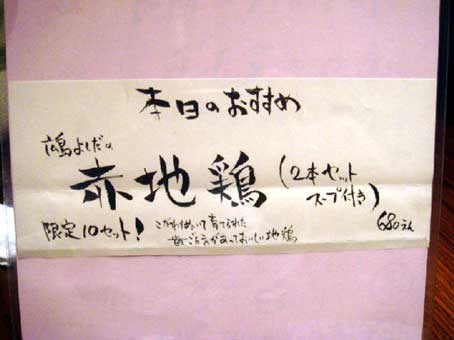 本日のおすすめ
広島よしだの
赤地鶏(2本セット
スープ付き)
限定10セット!
こだわりぬいて育てられた
歯ごたえがあっておいしい地鶏
680えん